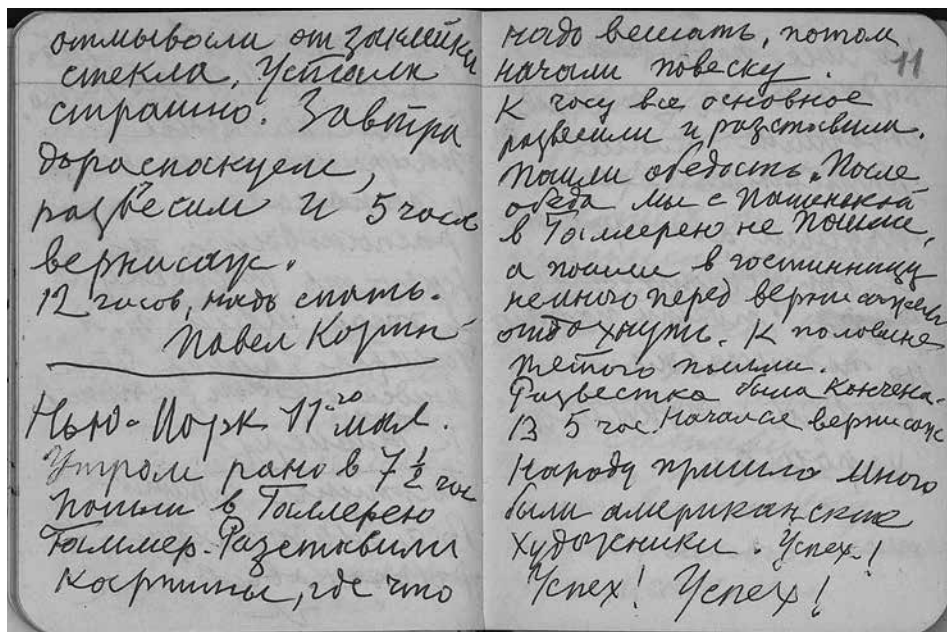 отмывали от заклейки
стекла, устали
страшно. Завтра
дораспакуем,
развесим и 5 часов
вернисаж.
12 часов, надо спать.
Павел Корин
Нью-Йорк 11-го мая.
Утром рано в 7 1/2 час
пошли в Галлерею
Гаммер. Разставили
картины, где что
11
надо вешать, потом
начали повеску.
К часу все основное
развесили и разставили.
Пошли обедать. После
обеда мы с Пашенькой
в Галлерею не пошли,
а пошли в гостинницу
немного перед вернисажем
отдохнуть. К половине
пятого пошли.
Развестка была кончена.
В 5 час. начался вернисаж
Народу пришло много
были американские
художники. Успех!
Успех! Успех!